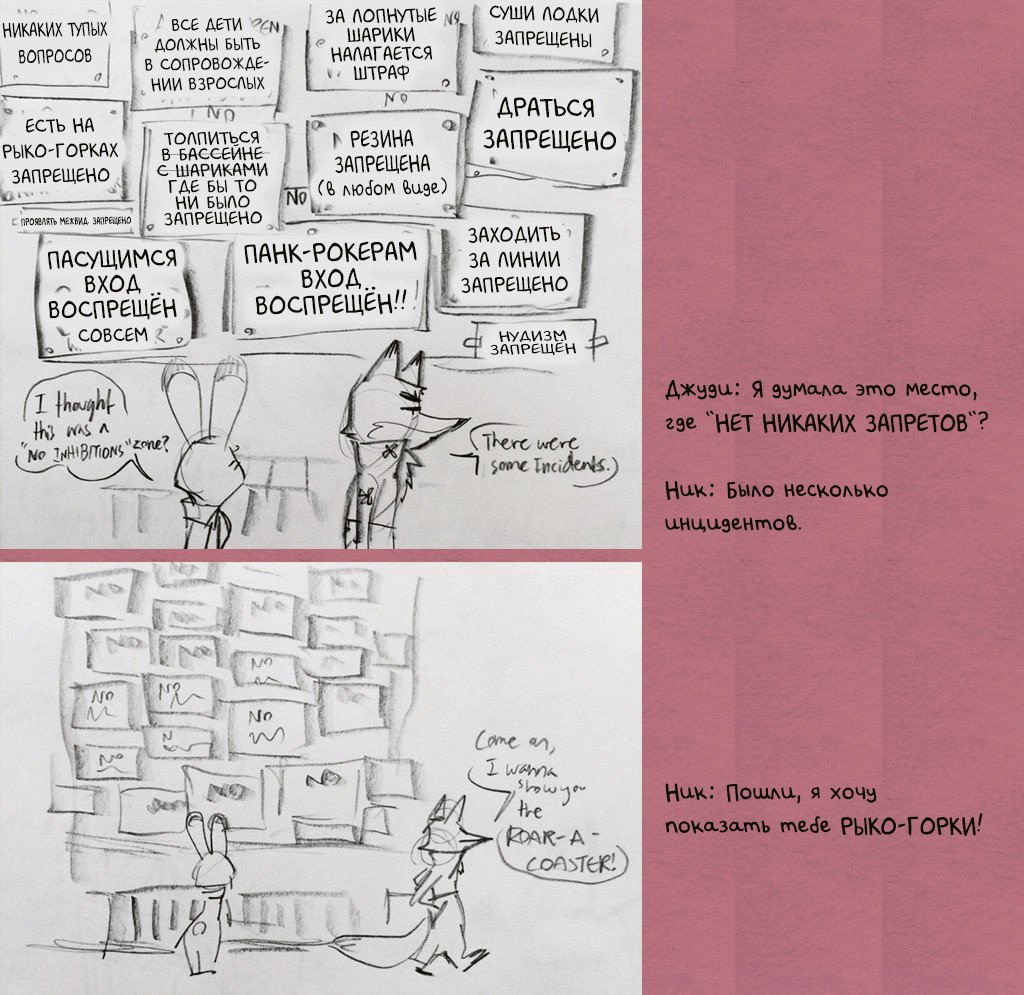 НИКАКИХ ТУПЫХ
ВОПРОСОВ
ВСЕ ДЕТИ
ДОЛЖНЫ БЫТЬ
В СОПРОВОЖДЕ-
НИИ ВЗРОСЛЫХ
ЗА ЛОПНУТЫЕ
ШАРИКИ
НАЛАГАЕТСЯ
ШТРАФ
NO
СУШИ ЛОДКИ
ЗАПРЕЩЕНЫ
ЕСТЬ НА
РЫКО-ГОРКАХ
ЗАПРЕЩЕНО
NO
ТОЛПИТЬСЯ
В БАССЕЙНЕ
С ШАРИКАМИ
ГДЕ БЫ ТО
НИ БЫЛО
ЗАПРЕЩЕНО
NO
РЕЗИНА
ЗАПРЕЩЕНА
(в любом виде)
NO
ДРАТЬСЯ
ЗАПРЕЩЕНО
ПРОЯВЛЯТЬ МЕХВИД ЗАПРЕЩЕНО
ПАСУЩИМСЯ
ВХОД
ВОСПРЕЩЁН
СОВСЕМ
ПАНК-РОКЕРАМ
ВХОД
ВОСПРЕЩЁН!!
ЗАХОДИТЬ
ЗА ЛИНИИ
ЗАПРЕЩЕНО
НУДИЗМ
ЗАПРЕЩЕН
I thought
this was a
"NO INHIBITIONS" zone?
There were
some Incidents.
Джуди: Я думала это место,
где "НЕТ НИКАКИХ ЗАПРЕТОВ"?
Ник: Было несколько
инцидентов.
NO
NO
NO
NO
NO
NO
NO
NO
NO
NO
Come on,
I wanna
show you
the
ROAR-A-
COASTER!
Ник: Пошли, я хочу
показать тебе РЫКО-ГОРКИ!